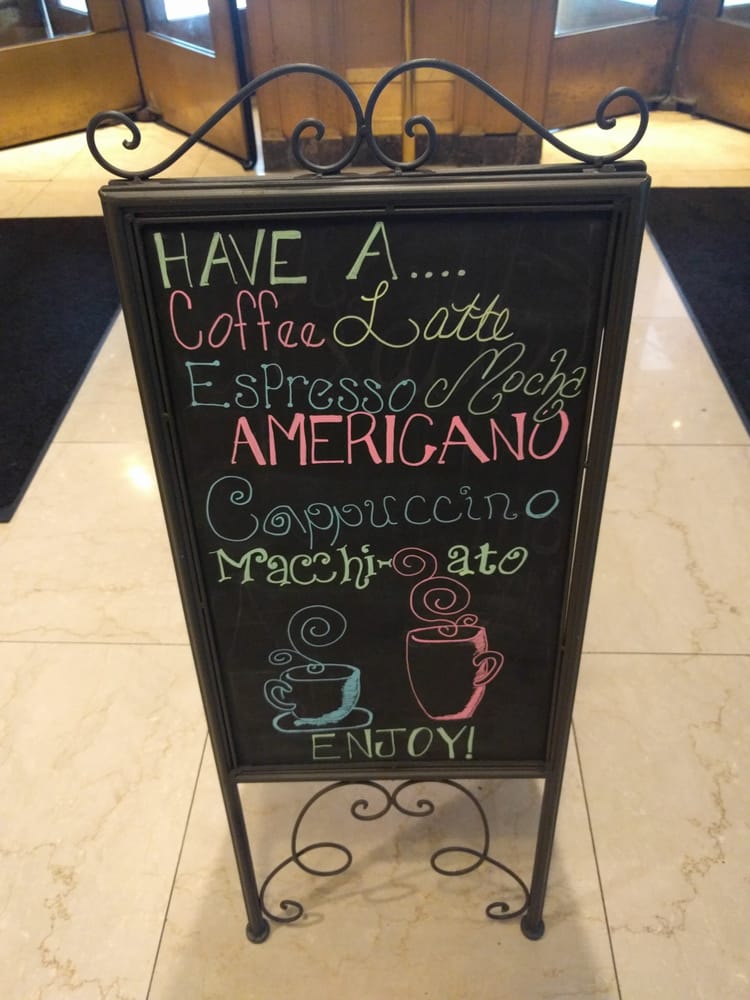 HAVE A....
Coffee Latte
Espresso Mocha
AMERICANO
Cappuccino
Macchi-ato
ENJOY!